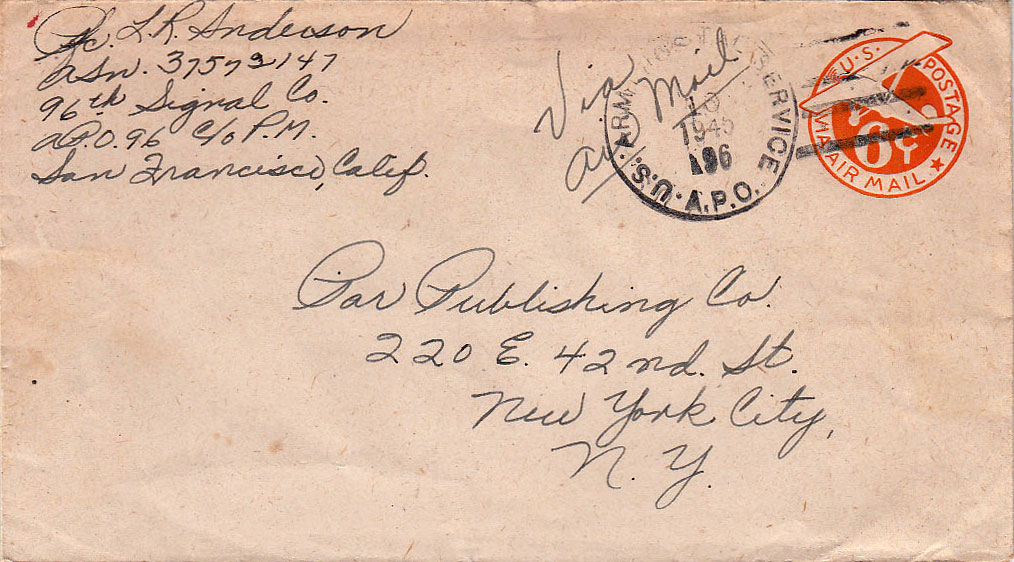 Pfc. L.R. Anderson
ASN. 37572147
96th Signal Co.
A.P.O. 96 C/o P.M.
San Francisco, Calif.
Via
Air Mail
U.S. ARMY POSTAL SERVICE
13
1945
96
A.P.O.
U.S. POSTAGE
6¢
VIA AIR MAIL
Par Publishing Co.
220 E. 42nd. St.
New York City,
N.Y.